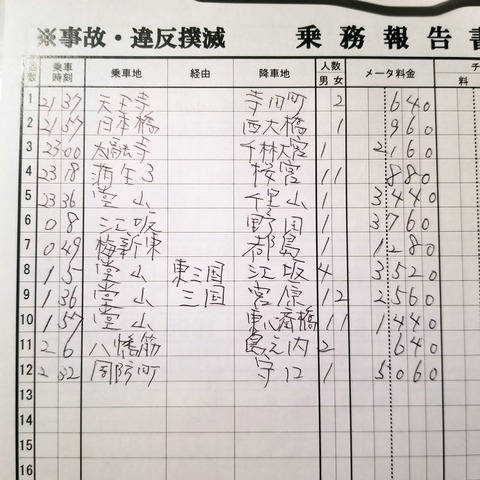 ※事故・違反撲滅 乗務報告書
回数 乗車時刻 乗車地 経由 降車地 人数 男 女 メータ料金 料
1 21 37 天王寺 寺田町 2 640
2 21 57 日本橋 西大橋 1 960
3 23 00 太融寺 千林大宮 1 2160
4 23 18 蒲生3 桜宮 1 1 880
5 23 36 堂山 1 3440
6 0 8 江坂 野田 1 3760
7 0 49 梅新東 都島 1 1280
8 1 5 堂山 東三国 江坂 4 3520
9 1 36 堂山 三国 宮原 1 2 2560
10 1 57 堂山 東心斎橋 1 1 1440
11 2 6 八幡筋 島之内 2 640
12 2 32 周防町 守口 1 5060
13
14
15
16